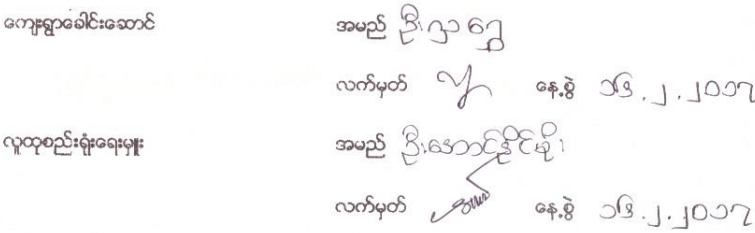 ကျေးရွာခေါင်းဆောင် အမည် ဦး
လက်မှတ် နေ့စွဲ ၁၆.၂.၂၀၁၇
လူထုစည်းရုံးရေးမှူး အမည် ဦးအောင်နိုင်စိုး
လက်မှတ် နေ့စွဲ ၁၆.၂.၂၀၁၇